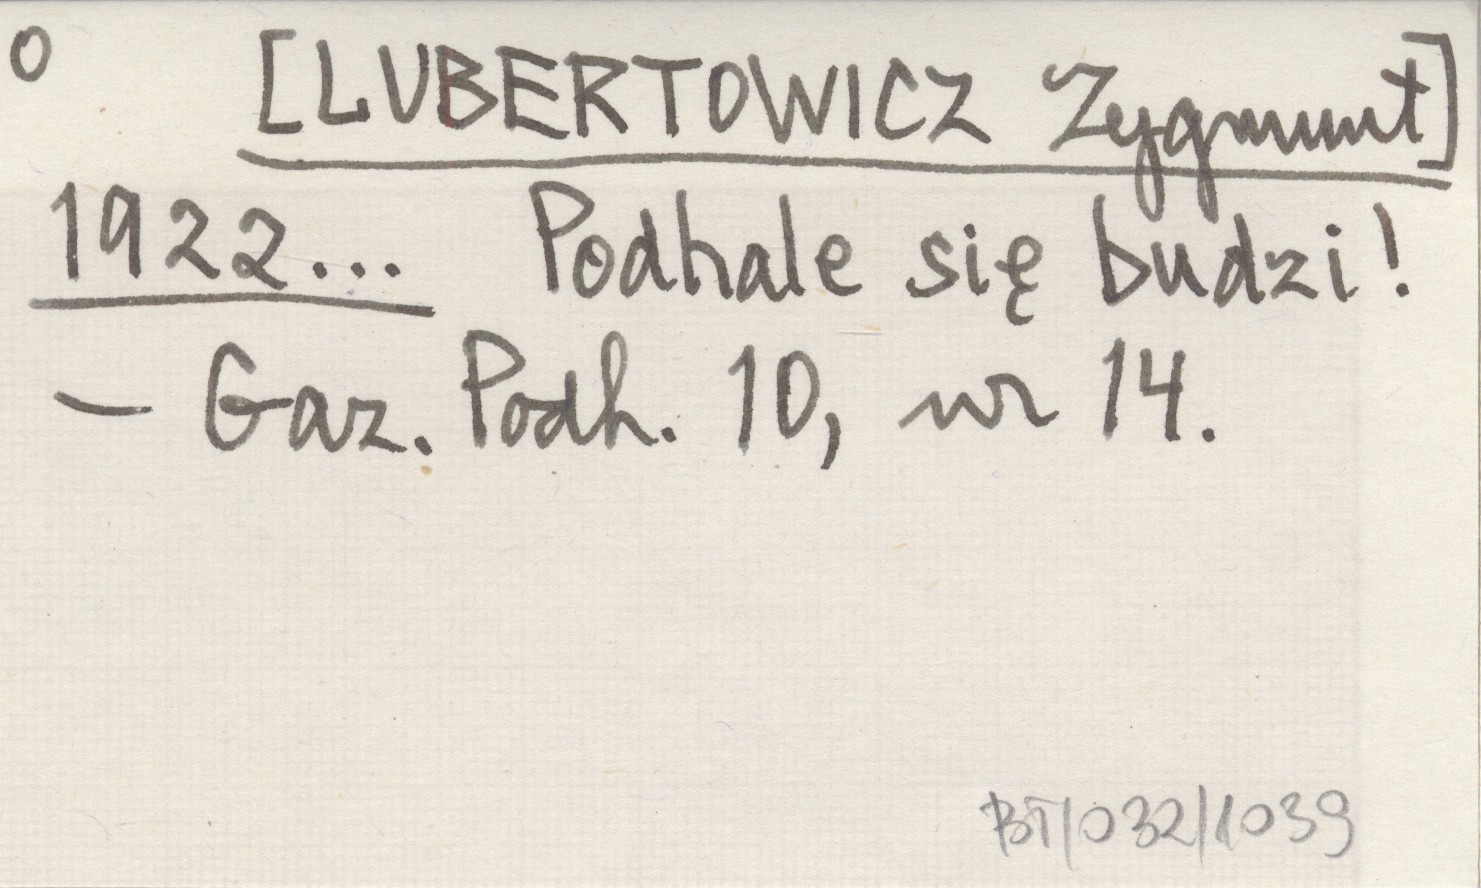 o [LUBERTOWICZ Zygmunt]
1922... Podhale się budzi!
— Gaz. Podh. 10, nr 14.
BT/032/1039